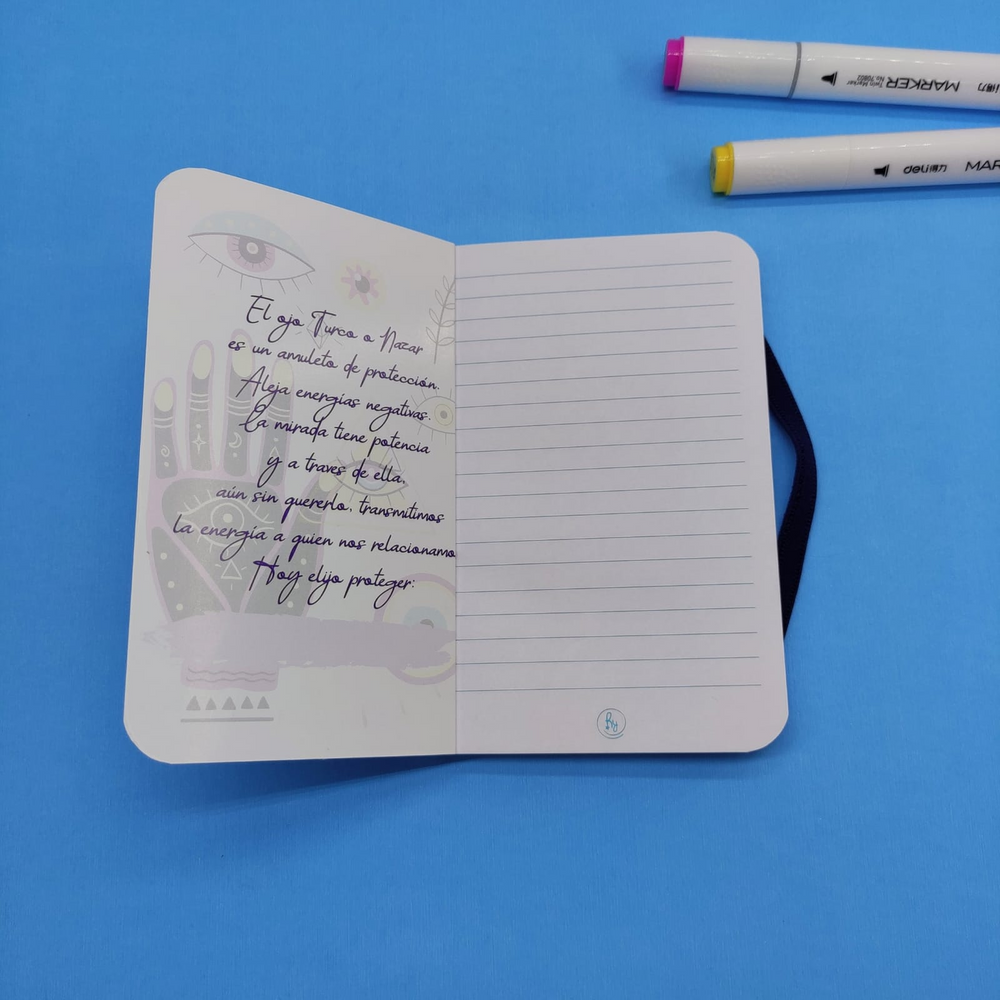 El ojo Turco o Nazar
es un amuleto de protección.
Aleja energías negativas.
La mirada tiene potencia
y a traves de ella,
aún sin quererlo, transmitimos
la energía a quien nos relacionamo
Hoy elijo proteger:
MARKER
Twin Marker
No.70802
得力
deli得力
MAR